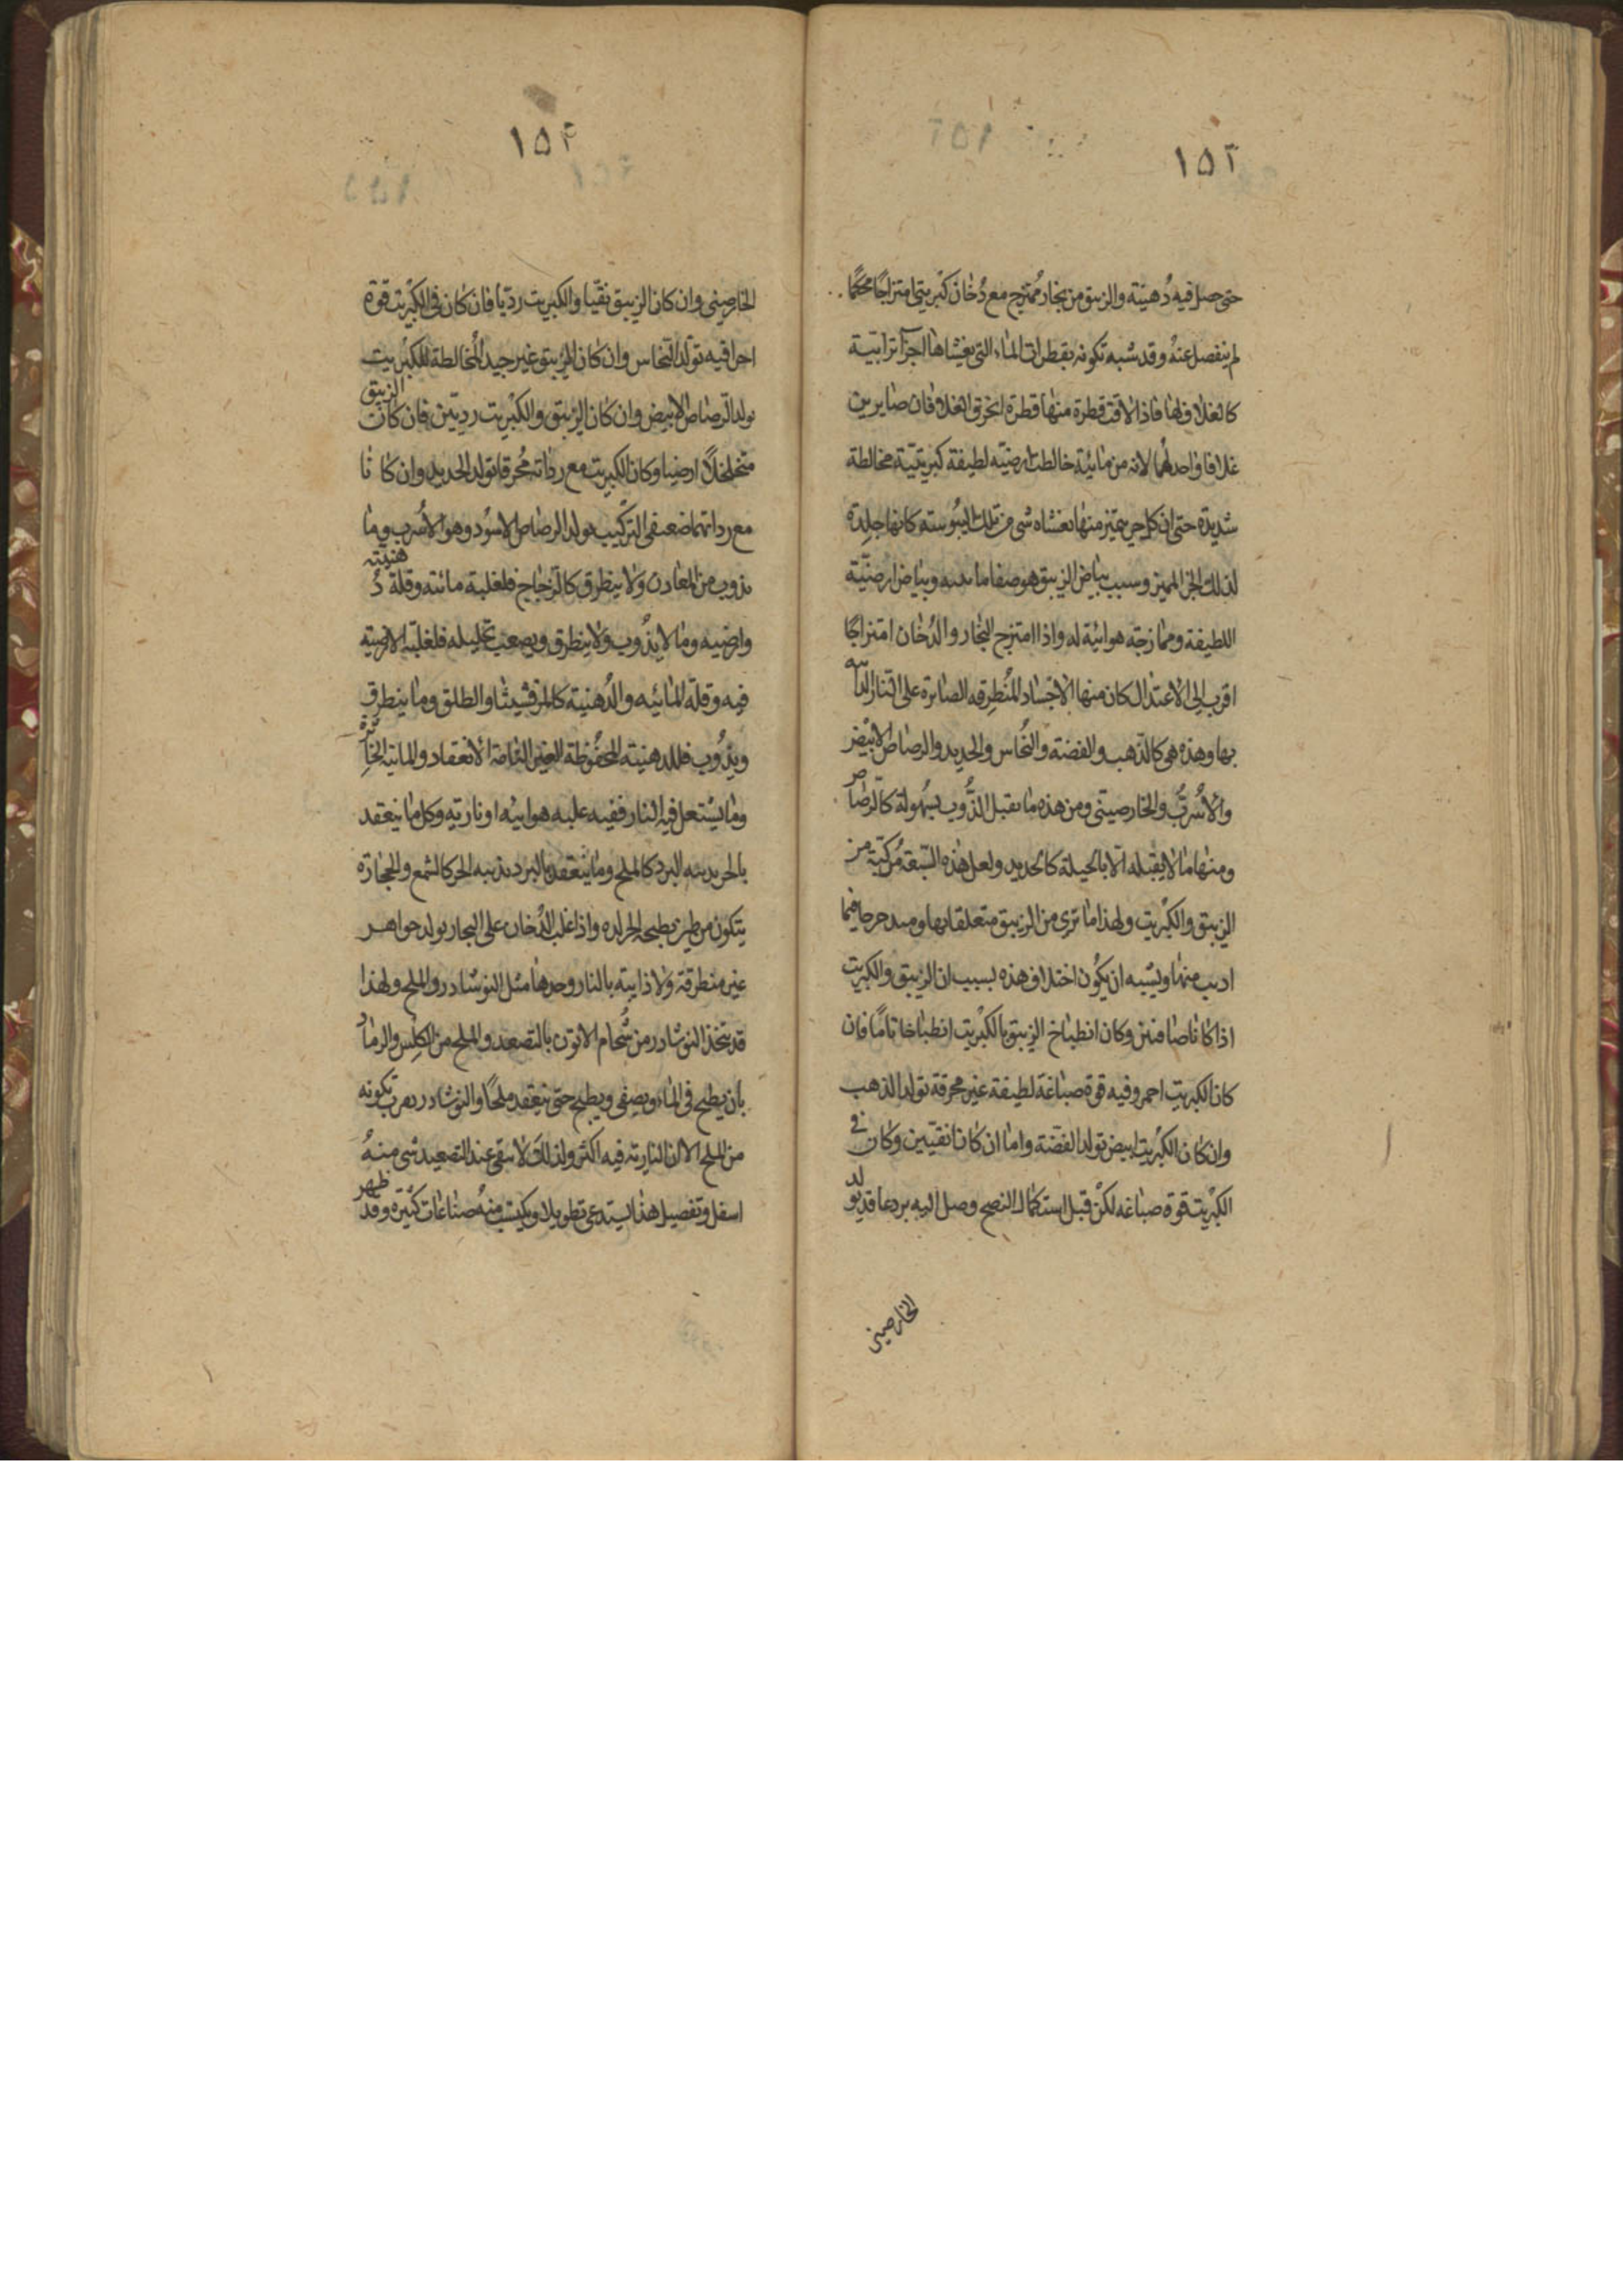 ١٥٣
حتى حصل فيه دُهنيّة والزيبق من بخار مُمتزج مع دُخان كبريتى امتزاجًا محكمًا
لم ينفصل عنهُ وقد شبه تكونه بقطرات الماء التى يغشاها اجزآ ترابيّة
كالغلاف لها فاذا لاقت قطرة منها قطرة انخرق الغلافان صايرين
غلافا واحد لهما لانه من مائية خالطت ارضيّه لطيفة كبريتيّة مخالطة
شديدة حتى ان كل جزء يتميز منها يغشاه شى من تلك اليبُوسته كانها جلدة
لذلك الجزء المميز وسبب بياض الزيبق هو صفا مائيته وبياض ارضيّة
اللطيفة وممازجة هوائية له واذا امتزج البُخار والدُخان امتزاجًا
اقرب الى الاعتدال كان منها الاجساد المُنطرقه الصابرة على النار الذائبه
بها وهذه هى كالذهب والفضة والنُحاس والحديد والرصاص الابيض
والاُسْرُبّ والخارصينى ومن هذه ما يقبل الذُّوب بسهولة كالرصاص
ومنها ما لا يقبله الّا بالحيلة كالحديد ولعل هذه السّبعة مُركبّة من
الزيبق والكبْريت ولهذا ما ترى من الزيبق متعلقا بها ومتدحرجا فيما
اذيب منها ويشبه ان يكُون اختلاف هذه بسبب ان الزيبق والكبريت
اذا كانا صافيين وكان انطباخ الزيبق بالكبْريت انطباخا تامًا فان
كان الكبريت احمر وفيه قوة صباغة لطيفة غير محرقة تولد الذهب
وان كان الكبْريت ابيض تولد الفضّة واما ان كانا نقيّين وكان فى
الكبْريت قوة صباغه لكنْ قبل استكمال النضج وصل اليه برد عاقد يولد
الخارصينى
١٥٤
الخارصينى وان كان الزيبق نقيّا والكبريت رديّا فان كان فى الكبْريت قوة
احراقيه تولد النحاس وان كان الزيبق غير جيد المُخالطة للكبْريت
تولد الرصاص الابيض وان كان الزيبق والكبْريت رديّين فان كانت الزيبق
متخلخلًا ارضيا وكان الكبريت مع رداته مُحرقا تولد الحديد وان كانا
مع رداتهما ضعيفى التركيب تولد الرصاص الاسوُد وهو الاُسرب وما
يذوب من المعادن ولا ينطرق كالزجاج فلغلبة مائته وقلة دُهنيّته
وارضيه وما لا يذُوب ولا ينطرق ويصعب تحليله فلغلبة الارضيّه
فيه وقلة المائيه والدُهنية كالمرقشيثا والطلق وما ينطرق
ويذُوب فللدهنيّه المحفُوظة الغير التامة الانعقاد والمائية الخاثرة
وما يشتعل فيه النار ففيه غلبه هوائيه او ناريه وكل ما ينعقد
بالحر يذيبه البرد كالملح وما ينعقد بالبرد يذيبه الحر كالشمع والحجارة
يتكون من طين يطبخه الحر لده واذا غلب الدُخان على البخار تولد جواهر
غير منطرقة ولا ذايبه بالنار وحدها مثل النوشادر والملح ولهذا
قد يتخذ النوشادر من سُخام الاتون بالتصعد والملح من الكِلس والرماد
بان يطبخ فى الماء ويصفى ويطبخ حتى ينعقد ملحًا والنوشادر يقرب تكونه
من الملح الا ان الناريّة فيه اكثر ولذلك لا يبقى عند التصعيد شى منهُ
اسفل وتفصيل هذا يستدعى تطويلا ويكتسب منهُ صناعات كثيرة وقد ظهر